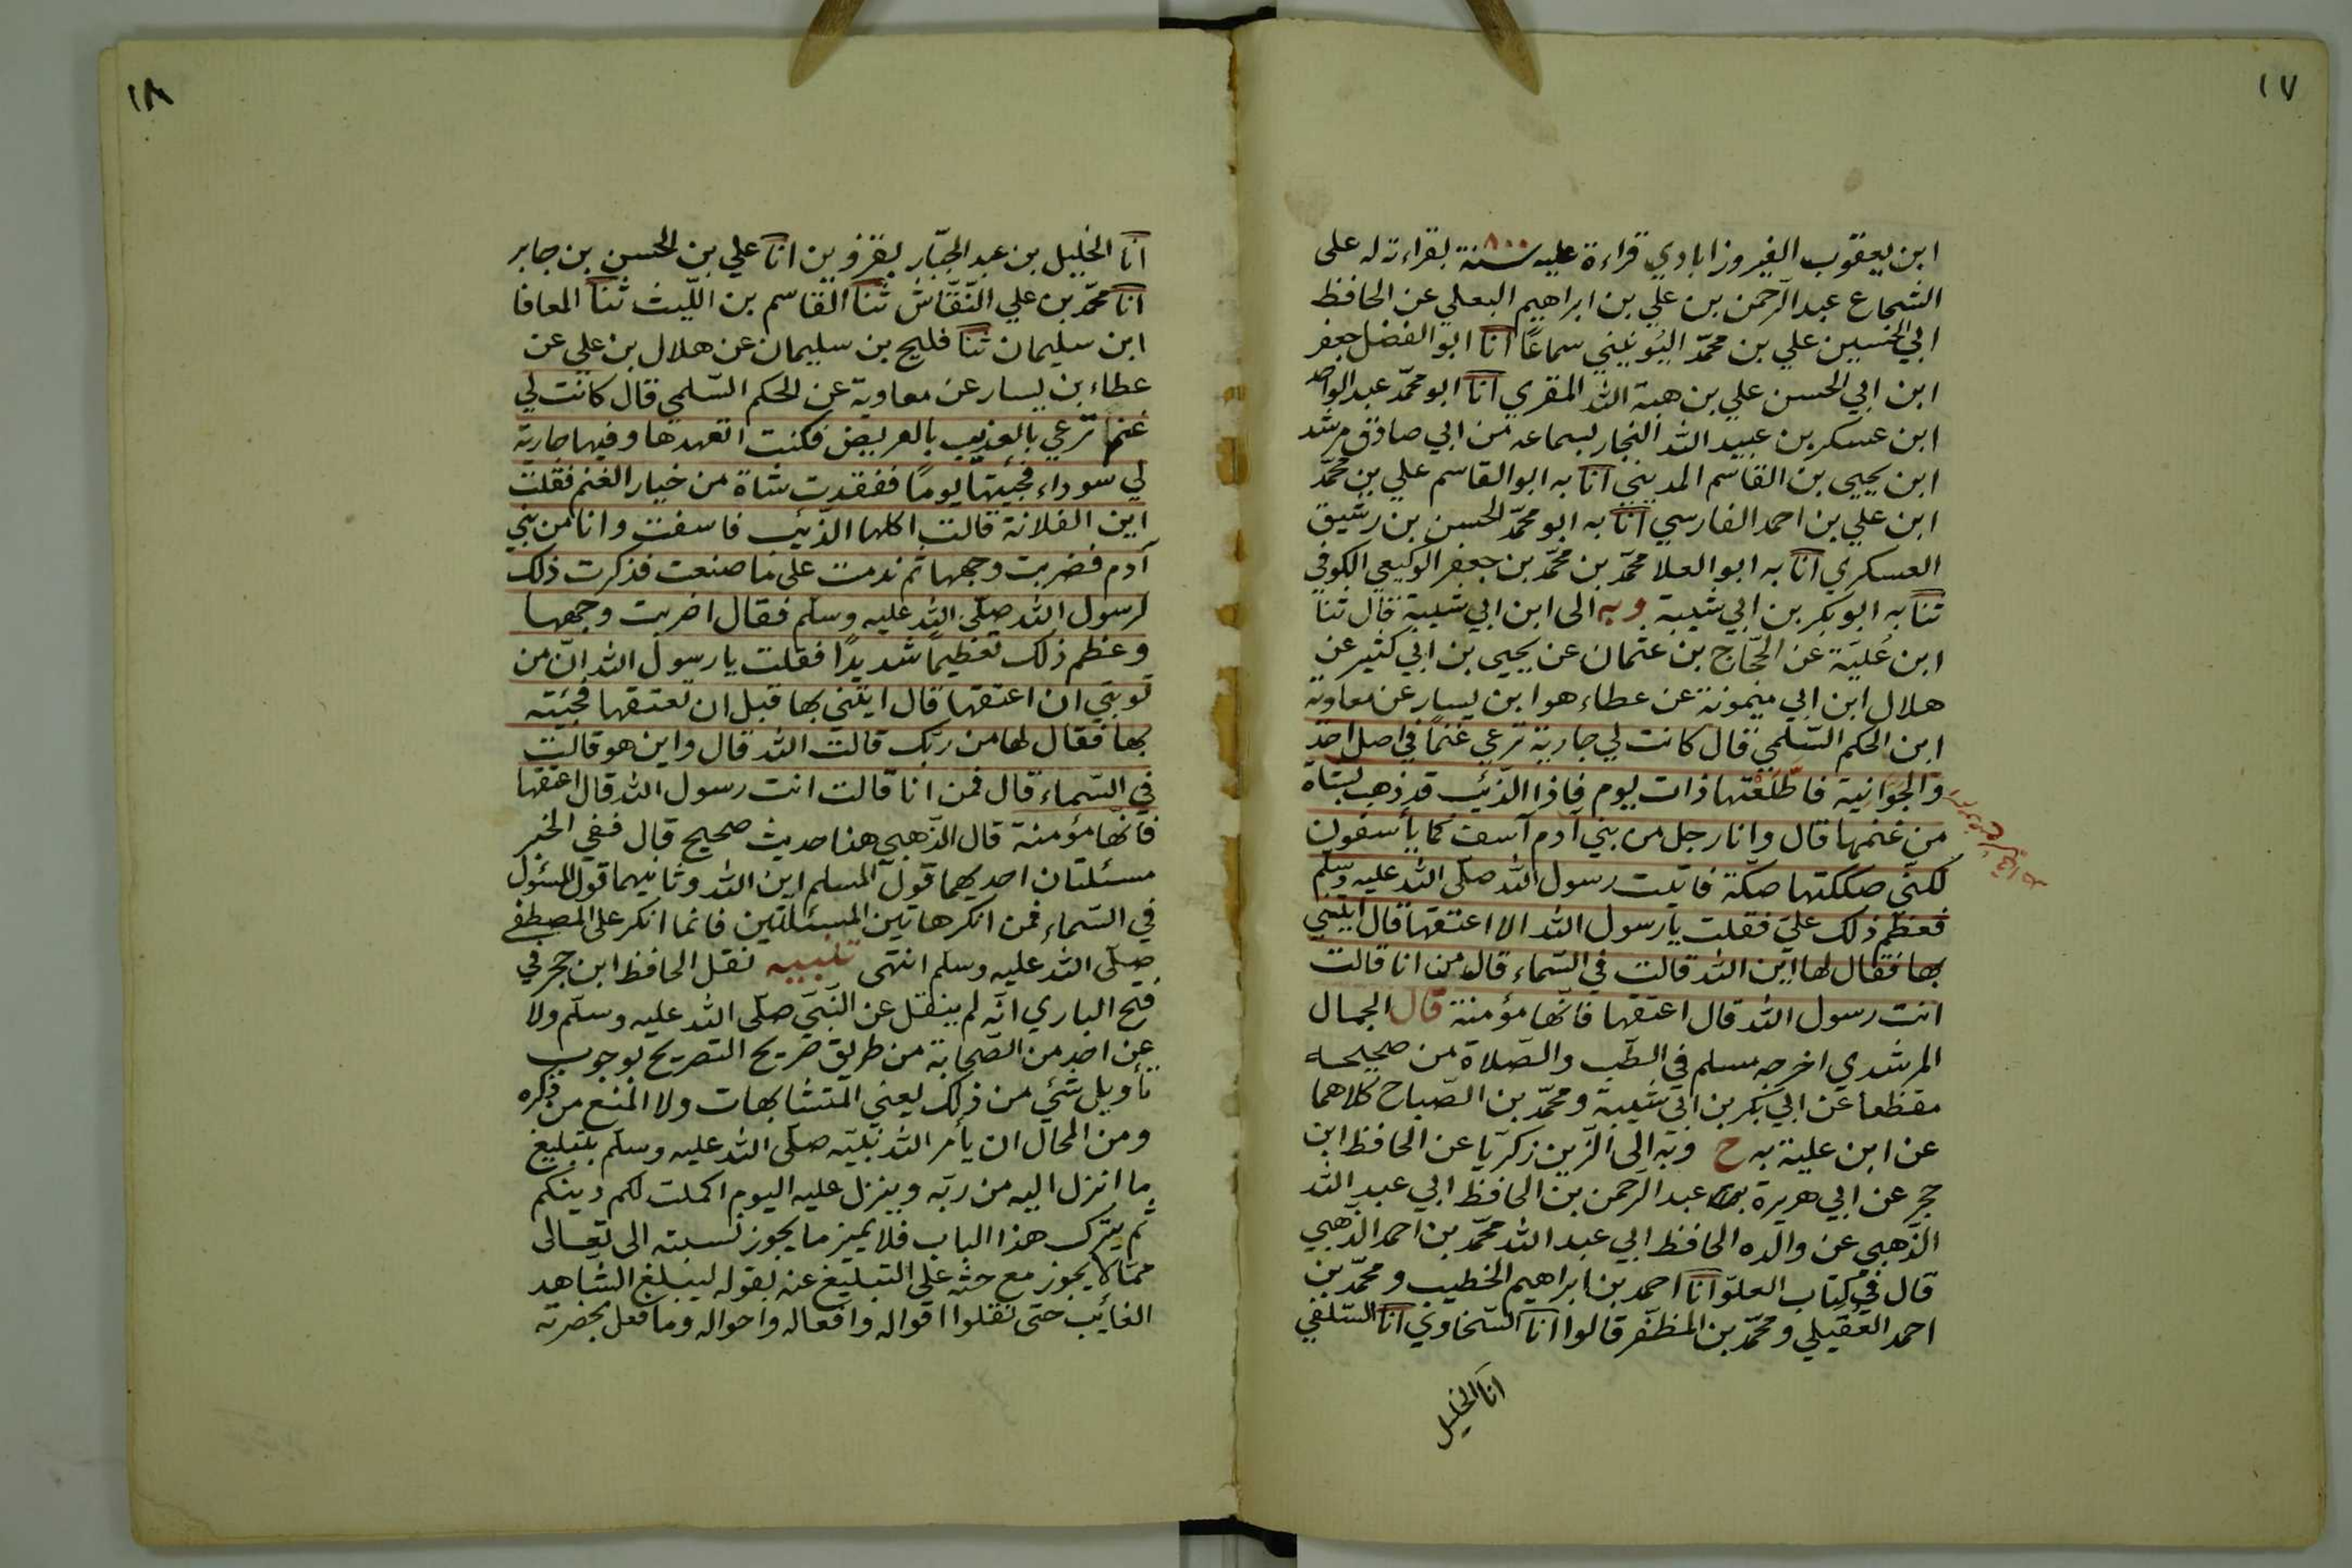 ١٧
ابن يعقوب الفيروزابادي قراءة عليه سنة ٨٠٠ بقراءته له على
الشجاع عبد الرّحمن بن علي بن ابراهيم البعلي عن الحافظ
ابي الحسين علي بن محمّد اليُونيني سماعًا انا ابو الفضل جعفر
ابن ابي الحسن علي بن هبة الله المقري انا ابو محمّد عبد الواحد
ابن عسكر بن عبيد الله النجار بسماعه من ابي صادق مرشد
ابن يحيى بن القاسم المديني انا به ابو القاسم علي بن محمّد
ابن علي بن احمد الفارسي انا به ابو محمّد الحسن بن رشيق
العسكري انا به ابو العلا محمّد بن محمّد بن جعفر الوكيعي الكوفي
ثنا به ابو بكر بن ابي شيبة وبه الى ابن ابي شيبة قال ثنا
ابن عُليّة عن الحّجاج بن عثمان عن يحيى بن ابي كثير عن
هلال ابن ابي ميمونة عن عطاء هو ابن يسار عن معاوية
ابن الحكم السّلمي قال كانت لي جارية ترعي غنمًا في اصل احد
والجوّانية فاطّلعْتها ذات يوم فاذا الذّئب قد ذهب بشاة
من غنمها قال وانا رجل من بني آدم آسف كما يأسفون
لكنّي صككتها صكّة فاتيت رسول الله صلّى الله عليه وسلّم
فعظّم ذلك عليّ فقلت يا رسول الله الا اعتقها قال ايتني
بها فقال لها اين الله قالت في السّماء قال من انا قالت
انت رسول الله قال اعتقها فانّها مؤمنة قال الجمال
المرشدي اخرجه مسلم في الطّب والصّلاة من صحيحه
مقطّعا عن ابي بكر بن ابي شيبة ومحمّد بن الصّباح كلاهما
عن ابن علية به ح وبه الى الزّين زكرّيا عن الحافظ ابن
حجر عن ابي هريرة عبد الرّحمن بن الحافظ ابي عبد الله
الذّهبي عن والده الحافظ ابي عبد الله محمّد بن احمد الذّهبي
قال في كتاب العلوّ انا احمد بن ابراهيم الخطيب ومحمّد بن
احمد العُقيلي ومحمّد بن المظفّر قالوا انا السّخاوي انا السّلفي
انا الخليل
١٨
انا الخليل بن عبد الجبّار بقزوين انا علي بن الحسن بن جابر
انا محمّد بن علي النّقّاش ثنا القاسم بن اللّيث ثنا المعافا
ابن سليمان ثنا فليح بن سليمان عن هلال بن علي عن
عطاء بن يسار عن معاوية عن الحكم السّلمي قال كانت لي
غنم ترعي بالعذيب بالعريض فكنت اتعهدها وفيها جارية
لي سوداء فجئتها يومًا ففقدت شاة من خيار الغنم فقلت
اين الفلانة قالت اكلها الذّئب فاسفت وانا من بني
آدم فضربت وجهها ثم ندمت على ما صنعت فذكرت ذلك
لرسول الله صلّى الله عليه وسلّم فقال اضربت وجهها
وعظم ذلك تعظيمًا شديدًا فقلت يا رسول الله انّ من
توبتي ان اعتقها قال ايتني بها قبل ان تعتقها فجئته
بها فقال لها من ربّك قالت الله قال واين هو قالت
في السّماء قال فمن انا قالت انت رسول الله قال اعتقها
فانّها مؤمنة قال الذّهبي هذا حديث صحيح قال ففي الخبر
مسئلتان احديهما قول المسلم اين الله وثانيهما قول المسئول
في السّماء فمن انكر هاتين المسئلتين فانما انكر على المصطفى
صلّى الله عليه وسلم انتهى تنبيه نقل الحافظ ابن حجر في
فتح الباري انّه لم ينقل عن النّبيّ صلّى الله عليه وسلّم ولا
عن احد من الصّحابة من طريق صريح التصريح بوجوب
تأويل شئ من ذلك يعني المتشابهات ولا المنع من ذكره
ومن المحال ان يأمر الله نبيّه صلّى الله عليه وسلّم بتبليغ
ما انزل اليه من ربّه وينزل عليه اليوم اكملت لكم دينكم
ثم يترك هذا الباب فلا يميز ما يجوز نسبته الى تعالى
ممّا لا يجوز مع حثّه على التبليغ عنه بقوله ليبلغ الشاهد
الغائب حتى نقلوا اقواله وافعاله واحواله وما فعل بحضرته